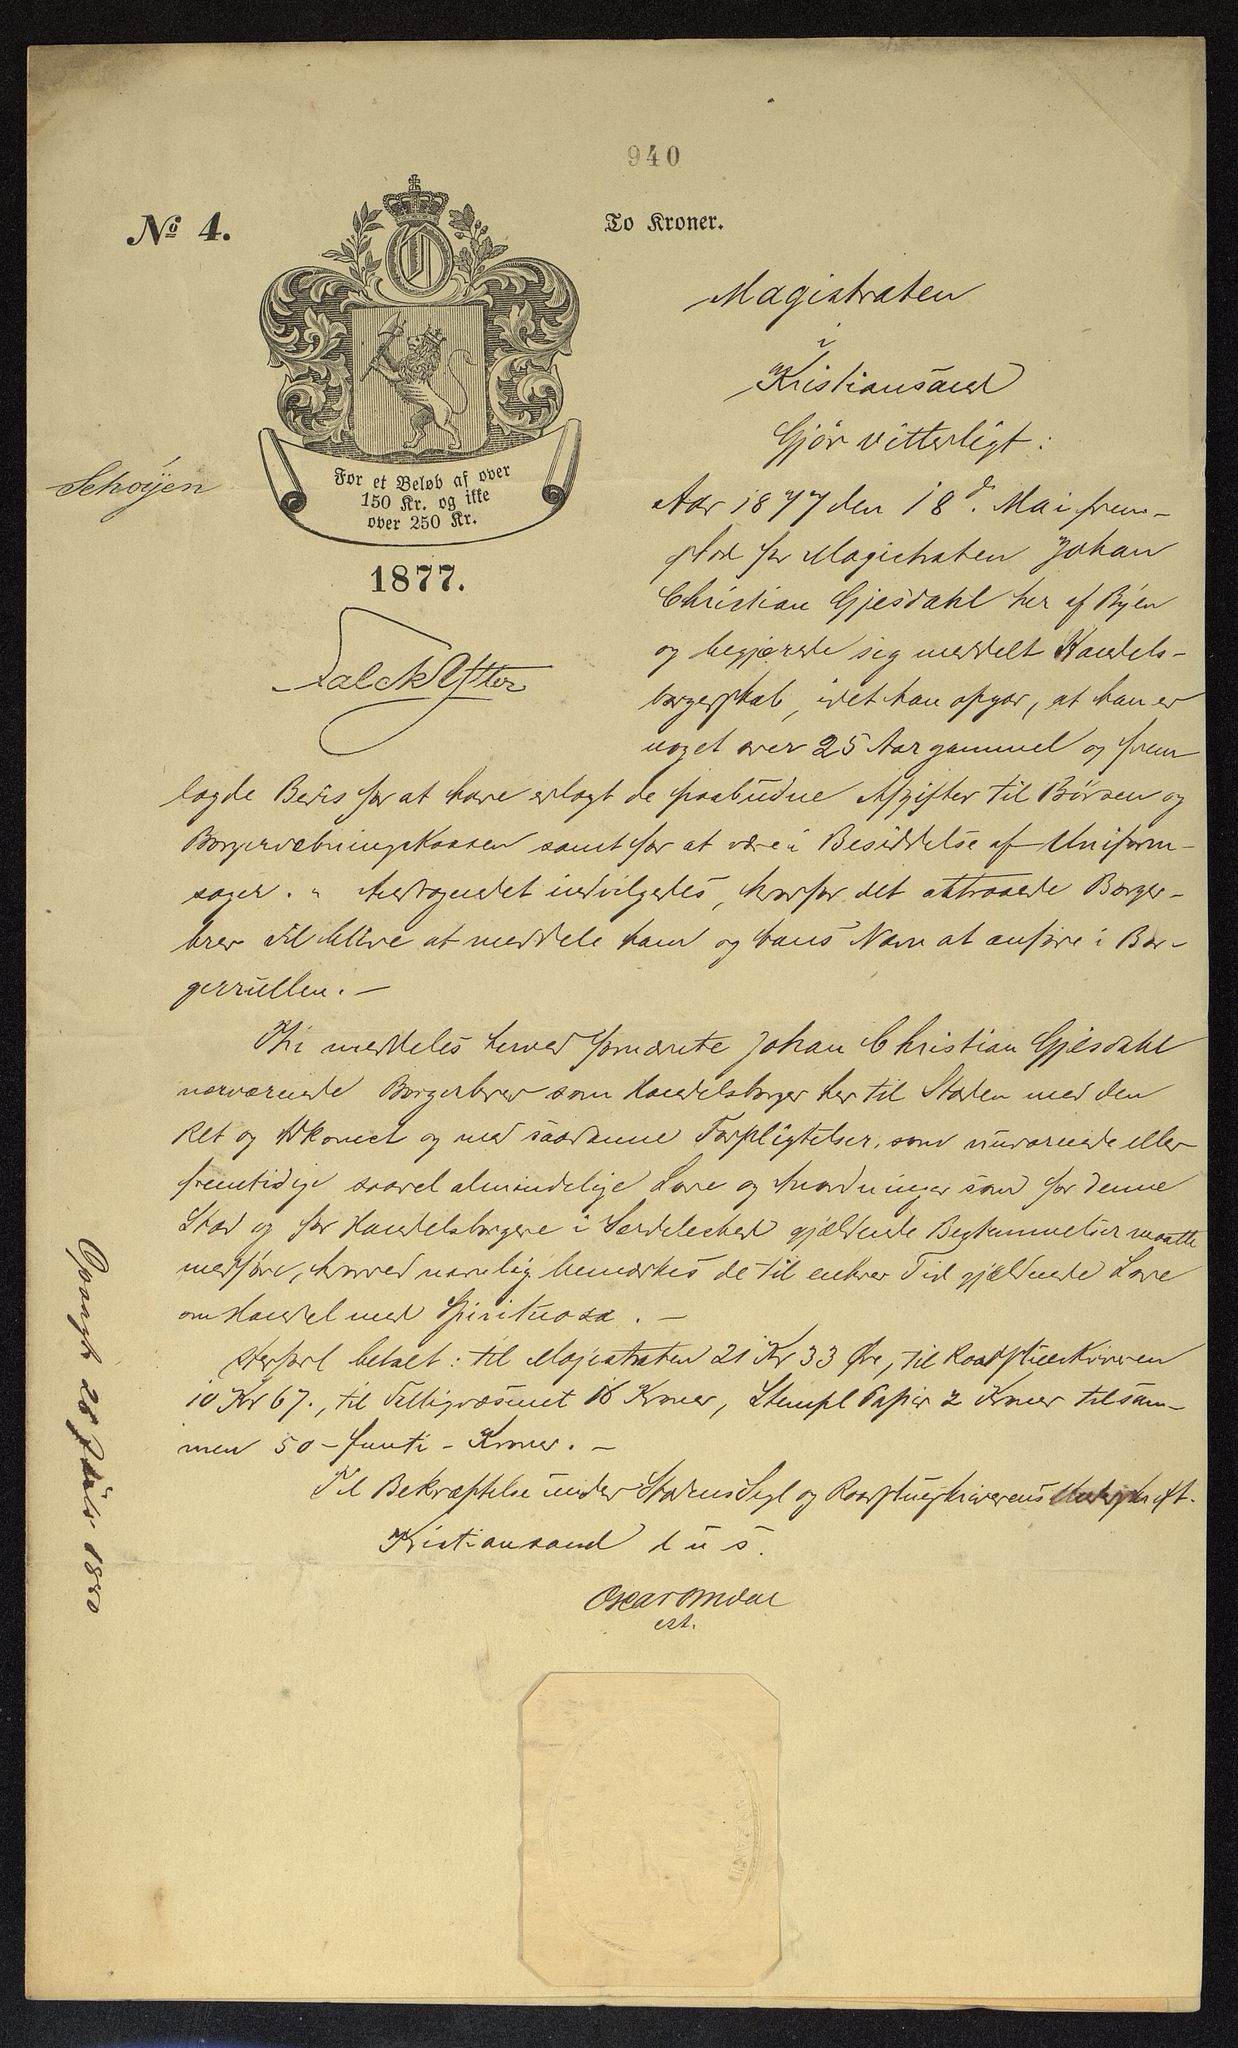 940
No 4.
To Kroner.
Magistraten
i
Kristianssand
Gjør vitterligt:
For et Beløb af over
150 Kr. og ikke
over 250 Kr.
1877.
Schøyen
Falck Ytter
Aar 1877 den 18d. Mai frem-
stod for Magistraten Johan
Christian Gjesdahl her af Byen
og begjærede sig meddelt Handels-
borgerskab, idet han opgav, at han er
noget over 25 Aar gammel og frem
lagde Bevis for at have erlagt de paabudne Afgifter til Børsen og
Borgervæbningskassen samt for at være i Besiddelse af Uniform-
sager. - Andragendet indvilgedes, hvorfor det attraaede Borger-
brev vil blive at meddele ham og hans Navn at anføre i Bor-
gerrullen. -
Thi meddeles herved fornævnte Johan Christian Gjesdahl
nærværende Borgerbrev som Handelsborger her til Staden med den
Ret og Adkomst og med saadanne Forpligtelser, som nuværende eller
fremtidige saavel almindelige Love og Anordninger som for denne
Stad og for Handelsborgere i Særdeleshed gjældende Bestemmelser maatte
medføre, hvorved navnlig bemærkes de til enhver Tid gjældende Love
om Handel med Spirituosa. -
Herfor betalt: til Magistraten 21 Kr 33 Øre, til Raadstueskriveren
10 Kr 67., til Fattigvæsenet 16 Kroner, Stempl. Papir 2 Kroner tilsam-
men 50 - femti - Kroner. -
Til Bekræftelse under Stadens Segl og Raadstueskriverens Underskrift.
Kristianssand d u s.
Oscar Omdal
cst.
Opsagt 28 1880